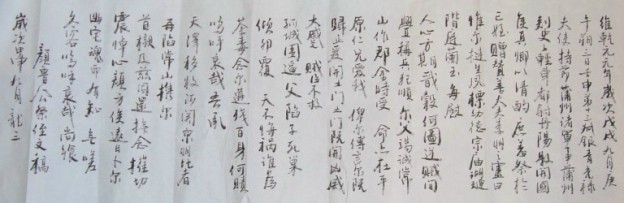 維乾元元年歲次戊戌九月庚
午朔三日壬申第十三叔銀青光祿
大夫使持節蒲州諸軍事蒲州
刺史上輕車都尉丹陽縣開國
侯真卿以清酌庶羞祭於
亡姪贈贊善大夫季明之靈曰
惟爾挺生夙標幼德宗廟瑚璉
階庭蘭玉每慰
人心方期戩穀何圖逆賊間
釁稱兵犯順爾父竭誠常
山作郡余時受命亦在平
原仁兄愛我俾爾傳言爾既
歸止爰開土門土門既開凶威
大蹙賊臣不救
孤城圍逼父陷子死巢
傾卵覆天不悔禍誰為
荼毒念爾遘殘百身何贖
嗚呼哀哉吾承
天澤移牧河關泉明比者
再陷常山攜爾
首櫬及茲同還撫念摧切
震悼心顏方俟遠日卜爾
幽宅魂而有知無嗟
久客嗚呼哀哉尚饗
顏魯公祭侄文稿